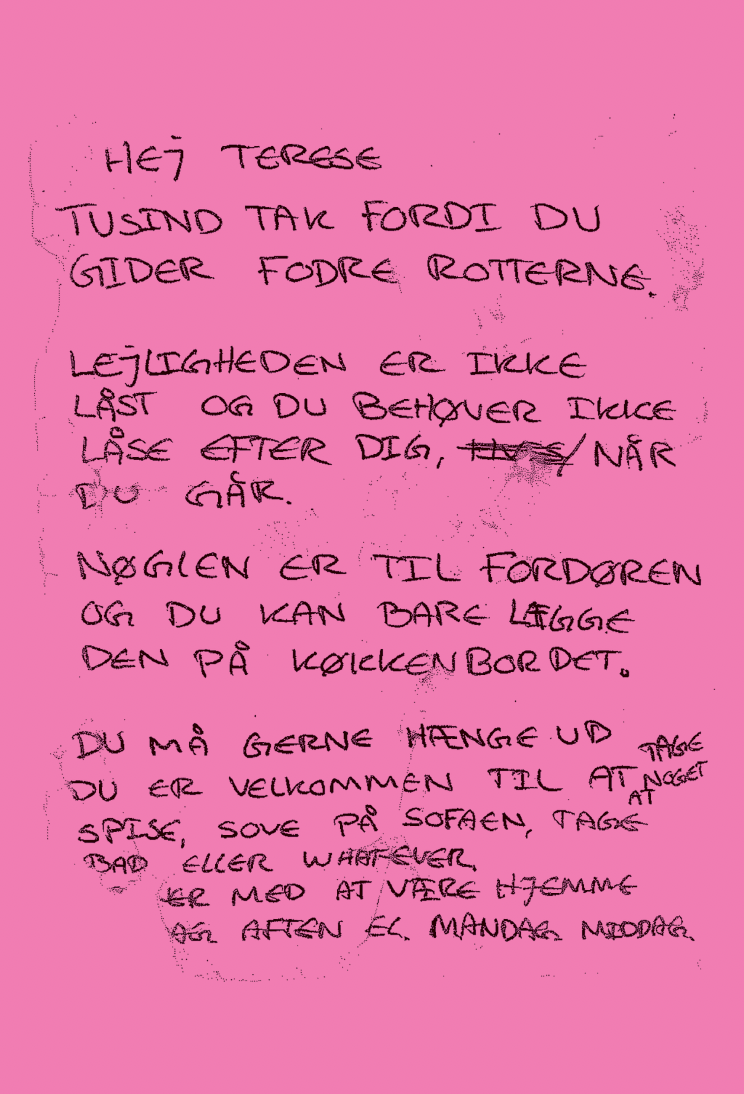 HEJ TERESE
TUSIND TAK FORDI DU
GIDER FODRE ROTTERNE.
LEJLIGHEDEN ER IKKE
LÅST OG DU BEHØVER IKKE
LÅSE EFTER DIG, NÅR
DU GÅR.
NØGLEN ER TIL FORDØREN
OG DU KAN BARE LÆGGE
DEN PÅ KØKKENBORDET.
DU MÅ GERNE HÆNGE UD
DU ER VELKOMMEN TIL AT TAGE NOGET AT
SPISE, SOVE PÅ SOFAEN, TAGE
BAD ELLER WHATEVER.
ER MED AT VÆRE HJEMME
AG AFTEN EL. MANDAG MIDDAG.